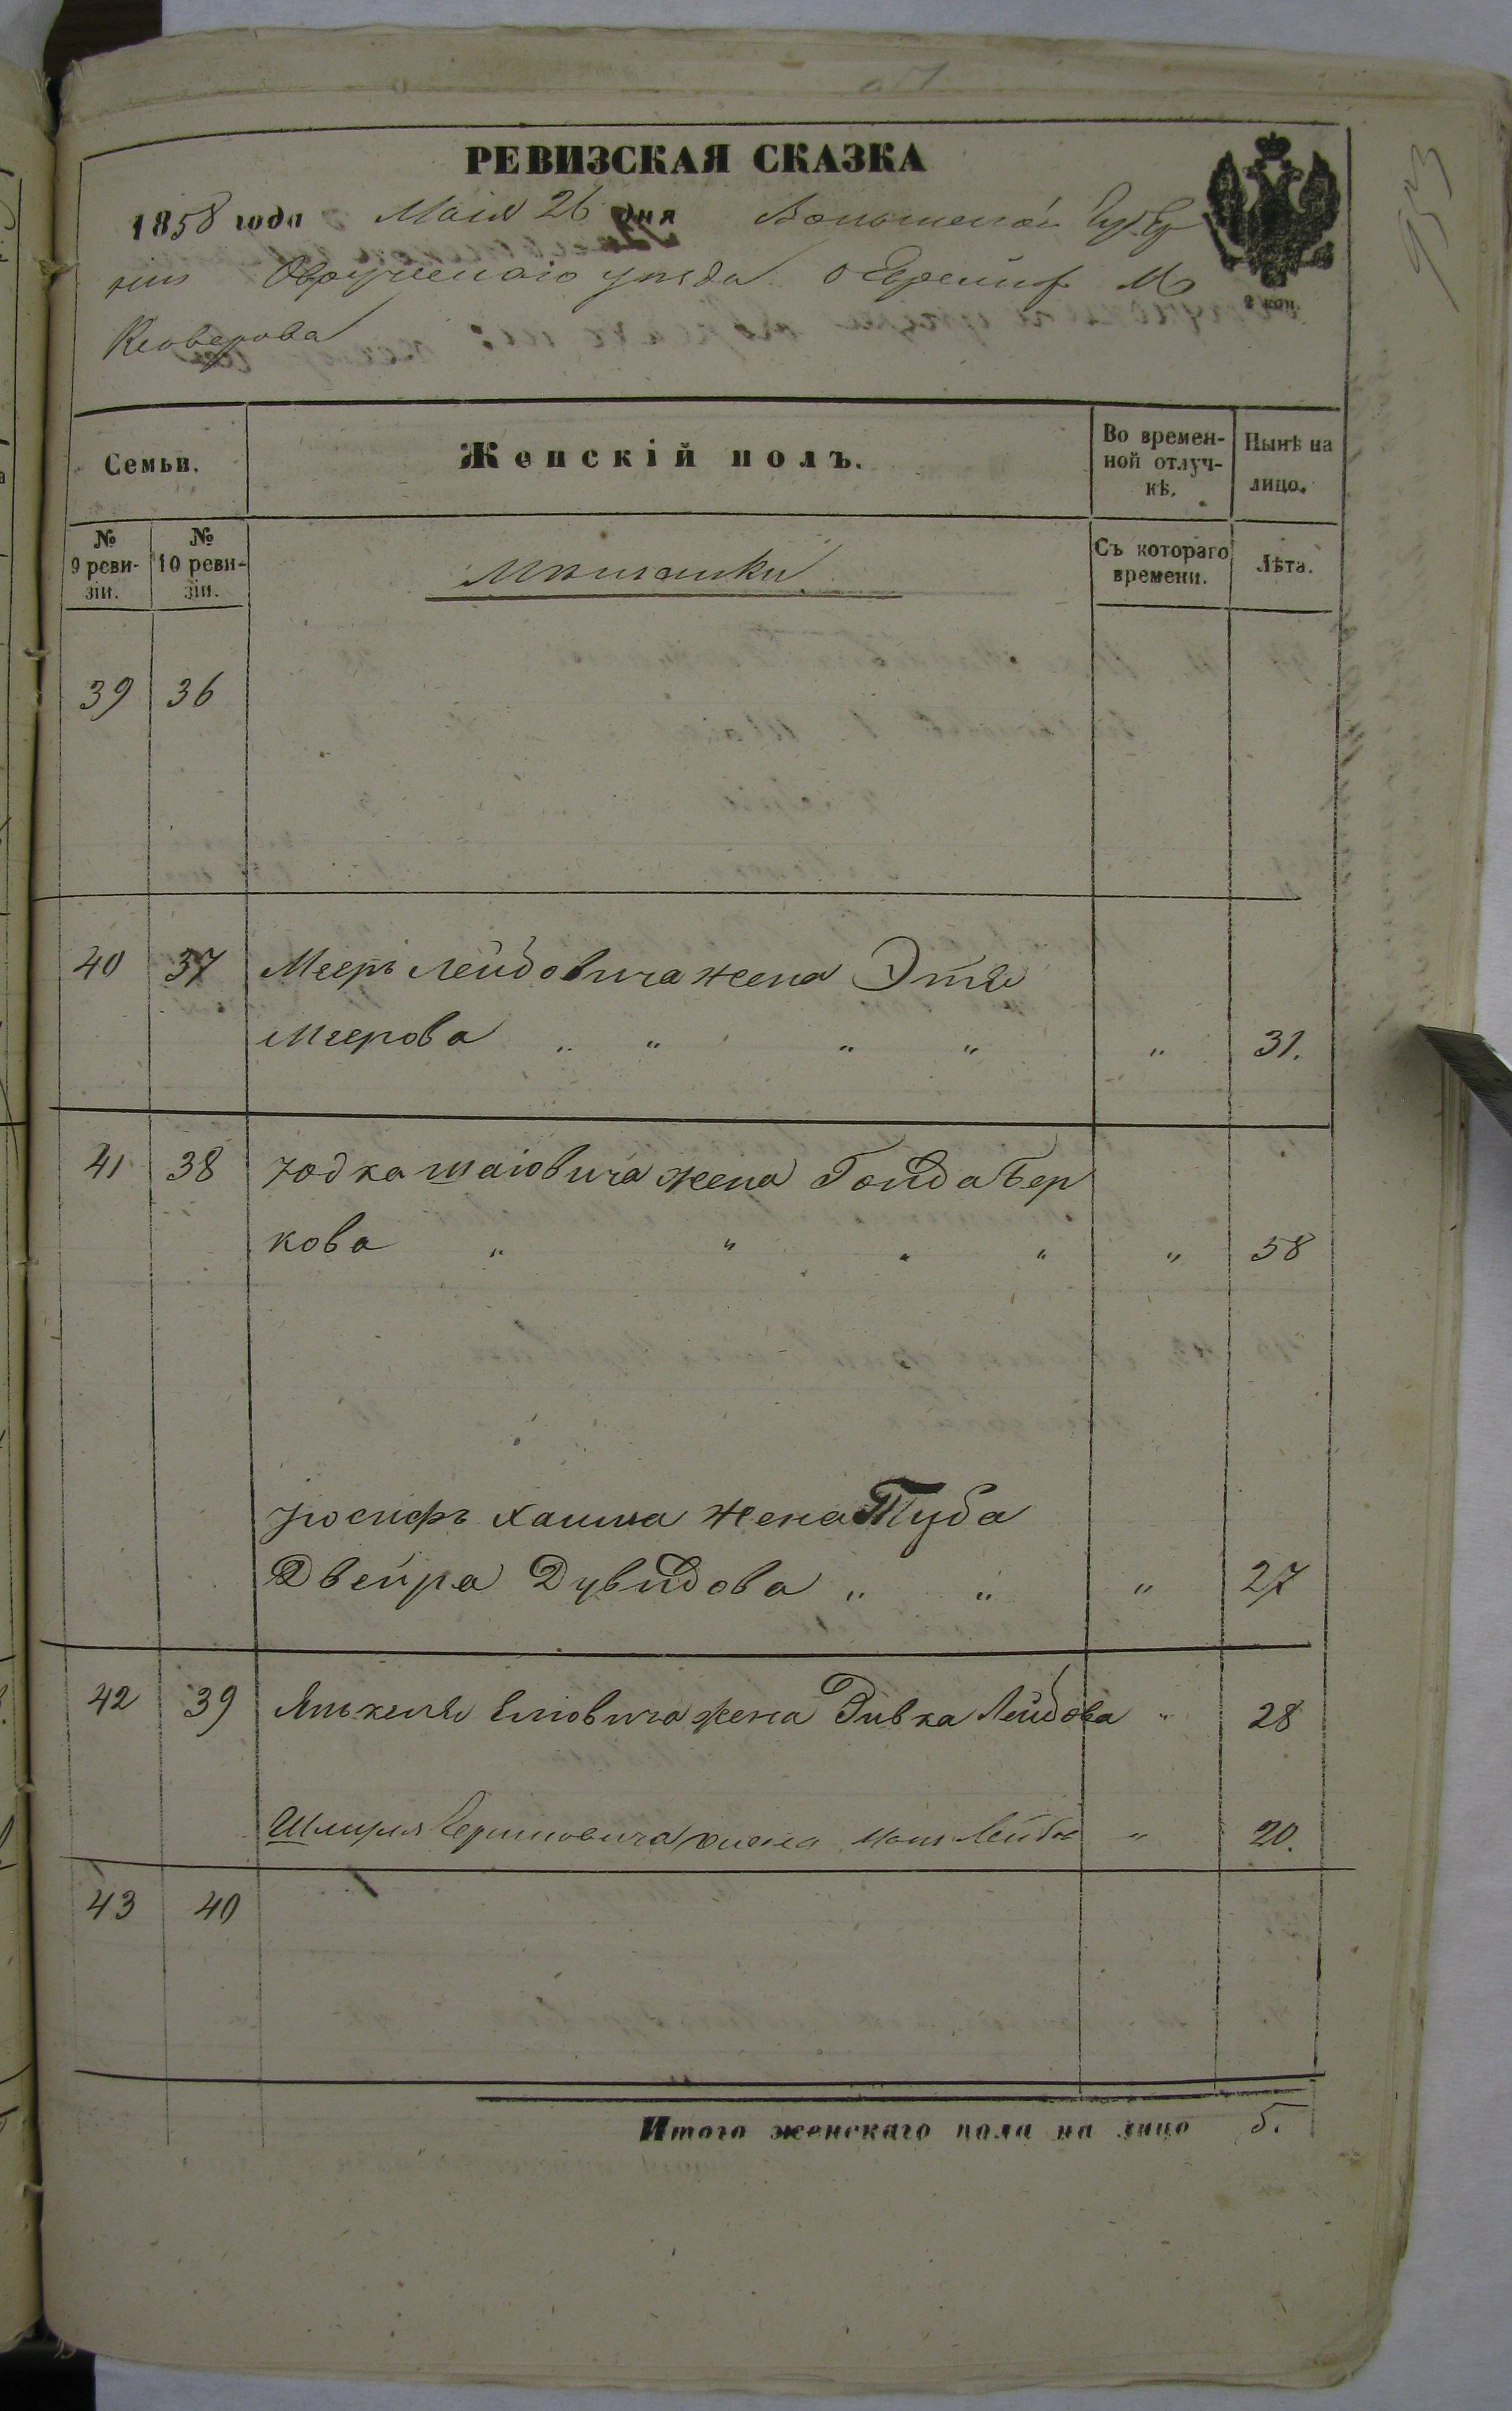 РЕВИЗСКАЯ СКАЗКА
1858 года Маія 26 дня Волынской Губер
ніи Овручскаго уѣзда о Евреяхъ М
Ксаверова
2 коп.
933
Семьи.
Женскій полъ.
Во времен-
ной отлуч-
кѣ.
Нынѣ на
лицо.
№
9 реви-
зіи.
№
10 реви-
зіи.
Мѣщанки
Съ котораго
времени.
Лѣта.
39 36
40 37 Мееръ Лейбовича жена Этя
Меерова " " " " " 31.
41 38 Іодка Шаіовича жена Гольда Бер
кова " " " " " 58
Іосифъ Хаима жена Туба
Двейра Дувидова " " " 27
42 39 Янкеля Еліовича жена Ривка Лейбова " 28
Шмуля жена Лейбо " 20.
43 40
Итого женскаго пола на лицо 5.